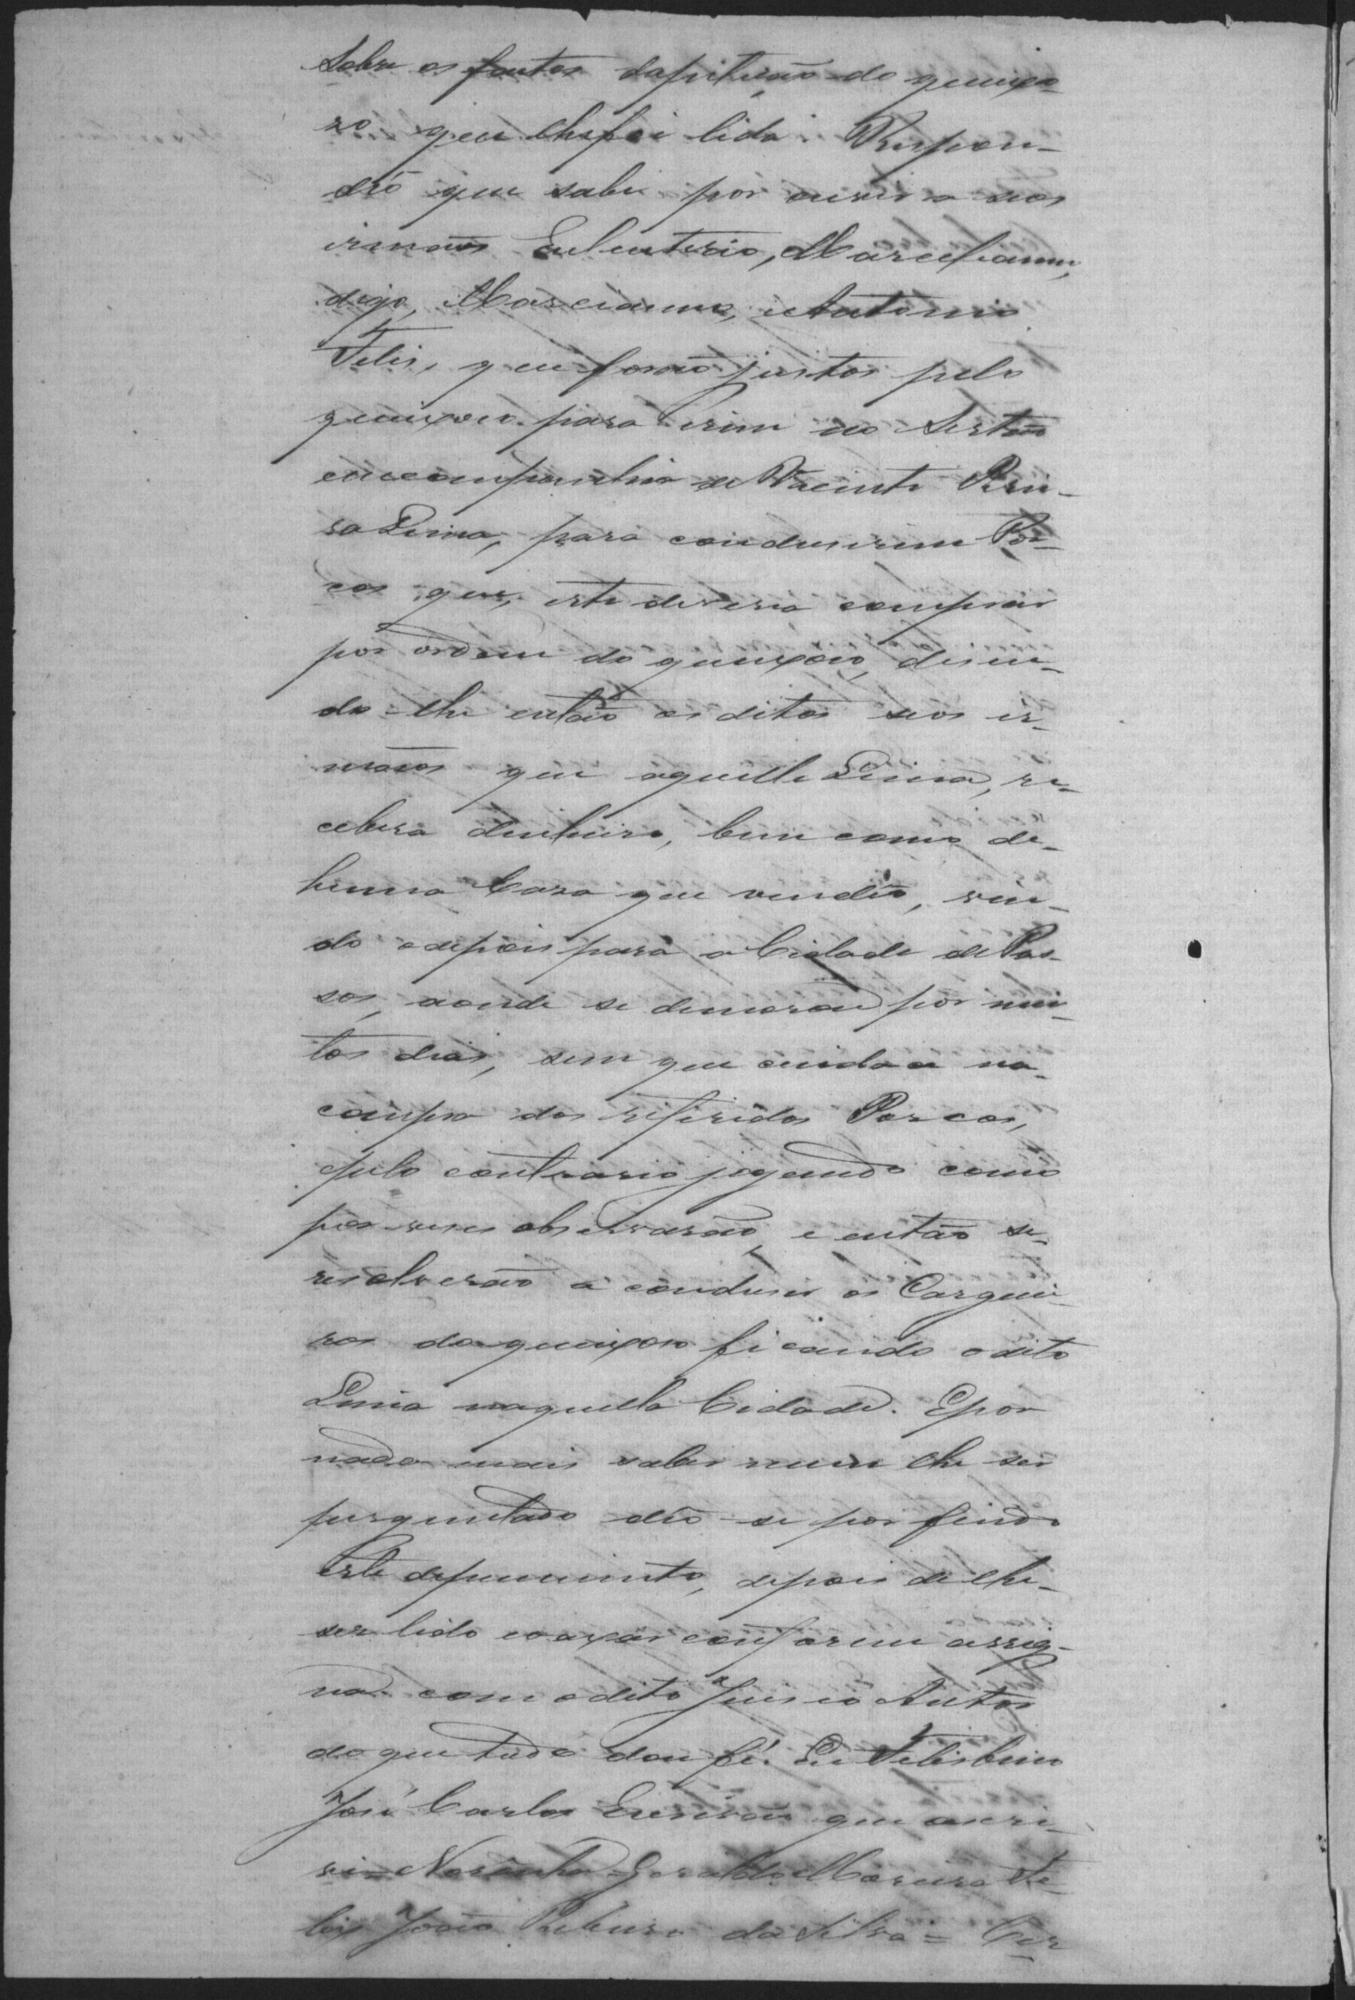 Sobre os factos da petição do queixo-
zo que lhe foi lida. Respon-
deo que sabe por ouvir a seos
irmãos Euleuterio, Marcelianno,
digo, Marcianno, e Antonio
Felis, que forão justos pelo
queixozo para irem no Sertão
em companhia de Jacinto Perei-
ra Lima, para condusirem Por-
cos que, este deveria comprar
por ordem do queixozo, disen-
do-lhe então os ditos seos ir-
mãos que aquelle Lima, re-
cebera dinheiro, bem como de-
huma Caza que vendêo, vin-
do e depois para a Cidade de Pas-
sos, aonde se demorou por mui-
tos dias, sem que cuidace na-
compra dos referidos Porcos,
pelo contrario jogando como
poz em observação, e então se-
resolverão a condusir os Carguei-
ros do queixozo ficando o dito
Lima naquella Cidade. E por
nada mais saber nem lhe ser
perguntado deo-se por findo
este depuimento, depois de lhe-
ser lido e o axar conforme assig-
na com o dito Juis e os Autos
do que tudo dou fé. Eu Felisbino
José Carlos Escrivão que escri-
vi = Noronha = Geraldo Moreira Fe-
lis João Ribeiro da Silva = Cer